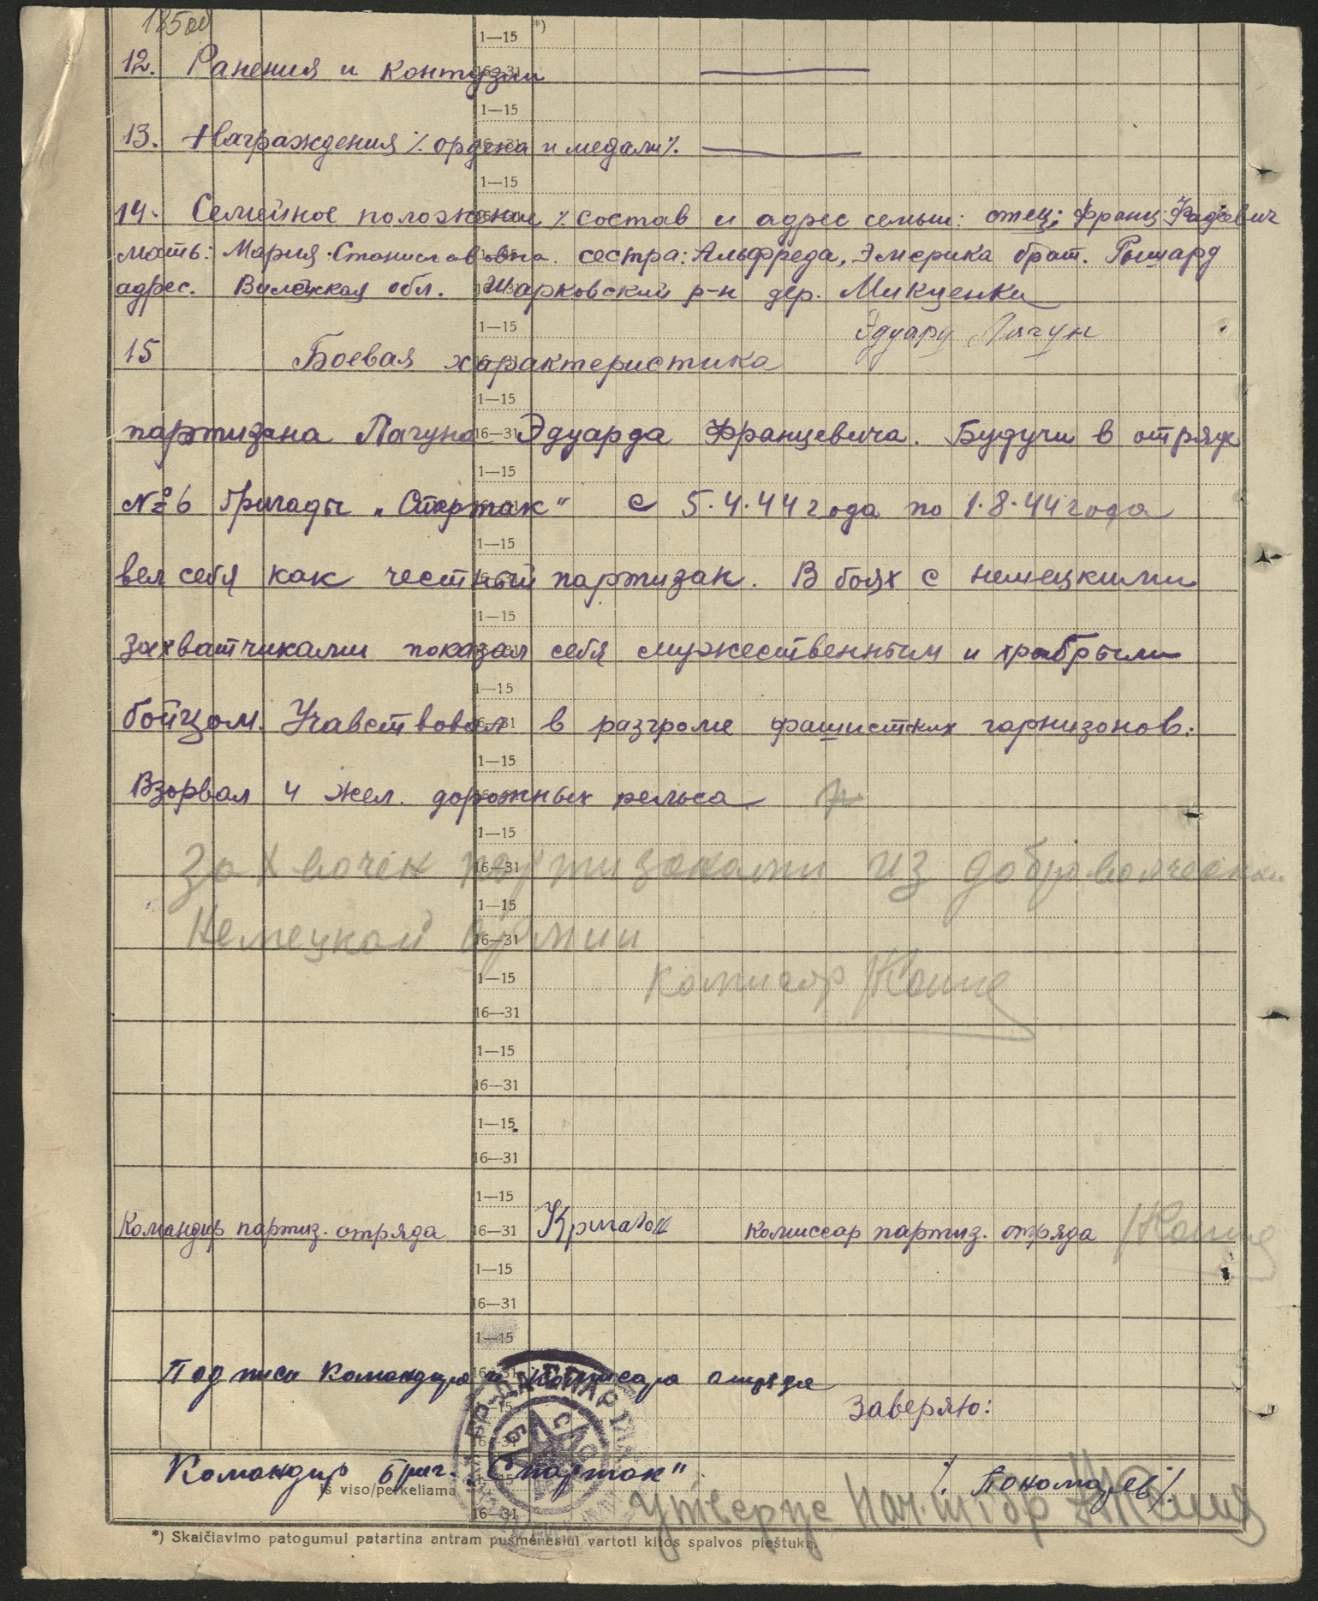 185об
1—15 *)
12. Ранения и контузии 16—31
1—15
13. Награждения % ордена и медали %.
1—15
14. Семейное положение % состав и адрес семьи: отец: Франц
мать: Мария Станиславовна. сестра: Альфреда, Эмерика брат. Рышард
адрес. Вилейская обл. Шарковский р-н дер. Микуленки
1—15 Эдуард Лагун
15 Боевая характеристика
1—15
партизана Лагуна 16—31 Эдуарда Францевича. Будучи в отряде
1—15
№ 6 бригады „Спартак“ с 5.4.44 года по 1.8.44 года
1—15
вел себя как честный партизан. В боях с немецкими
1—15
захватчиками показал себя мужественным и храбрым
1—15
бойцом. Учавствовал 16—31 в разгроме фашистских гарнизонов.
1—15
Взорвал 4 жел. дорожных рельса
1—15
Захвачен партизанами из добровольческой
16—31
1—15
Немецкой армии
16—31
1—15
комисар
16—31
1—15
16—31
1—15
16—31
1—15
Командир партиз. отряда 16—31 комиссар партиз. отряда
1—15
16—31
1—15
Подписи командира и комисара отряда
заверяю:
Командир бриг. „Спартак“ /. Пономарев/.
Iš viso/perkeliama
16—31
*) Skaičiavimo patogumui patartina antram pusmėnesiui vartoti kitos spalvos pieštuką.